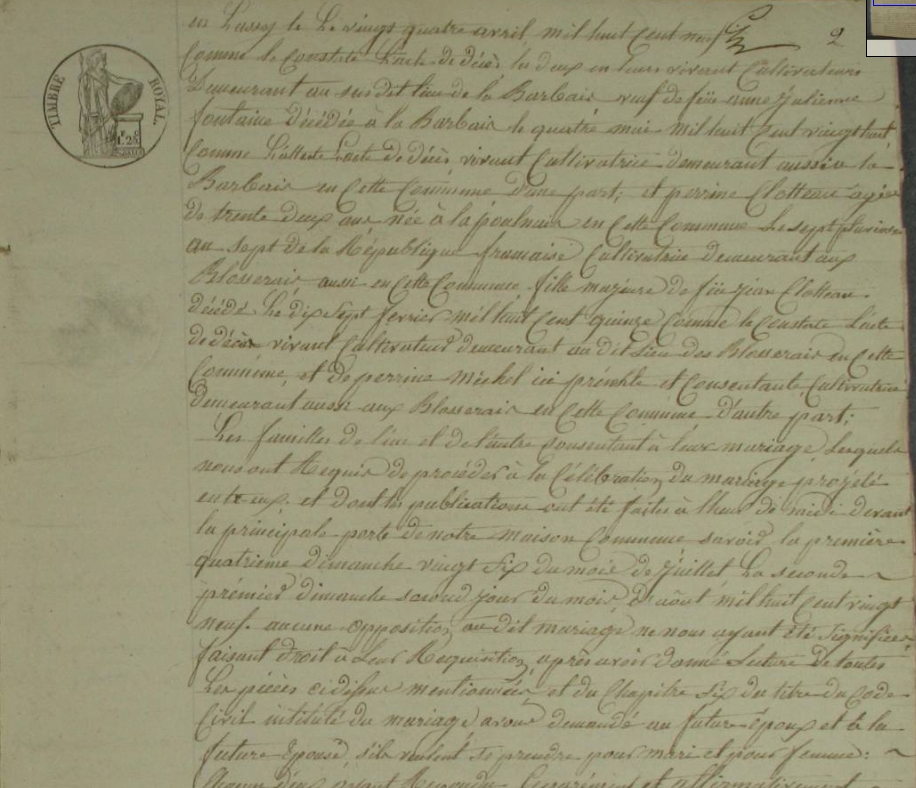 en Lassay le Le vingt quatre avril mil huit Cent neuf 2
Comme le Constate L'acte de décès. les deux en leurs vivant Cultivateurs
Demeurant au sus dit lieu de la Barbais veuf de feüe anne Julienne
fontaine décédée à la Barbais le quatre mai mil huit Cent vingt huit
Comme L'atteste L'acte de décès vivant Cultivatrice demeurant aussi a la
Barbais en Cette Commune d'une part; et perrine Clotteau agée
de trente deux ans née à la poulnais en Cette Commune Le sept pluviose
an sept de la République francaise Cultivatrice demeurant aux
Blosserais aussi en Cette Commune fille majeure de feü jean Clotteau
décédé Le dix Sept fevrier mil huit Cent quinze Comme le Constate L'acte
de décès vivant Cultivateur demeurant au dit Lieu des Blosserais en Cette
Commune, et de perrine michel ici présente et Consentante, Cultivatrice
demeurant aussi aux Blosserais en Cette Commune D'autre part;
Les familles de l'un et de l'autre consentant à leur mariage, Lesquels
nous ont Requis de procéder à la Célébration du mariage projété
entre eux. et dont les publications ont été faites à l'heure de midi devant
la principale porte de notre maison Commune savoir la première
quatrième dimanche vingt Six du mois de Juillet, La seconde
prémier dimanche second jour du mois, D'août mil huit Cent vingt
neuf. aucune opposition au dit mariage ne nous ayant été Signifiée
faisant droit à Leur Réquisition, après avoir donné Lecture de toutes
Les pièces ci dessus mentionnées, et du Chapitre Six du titre du Code
Civil intitulé du mariage avons demandé au futur époux et à la
future épouse, s'ils veulent Se prendre pour mari et pour femme:
Chacun d'eux ayant Répondu Séparément et affirmativement
TIMBRE ROYAL.
1.F 25C